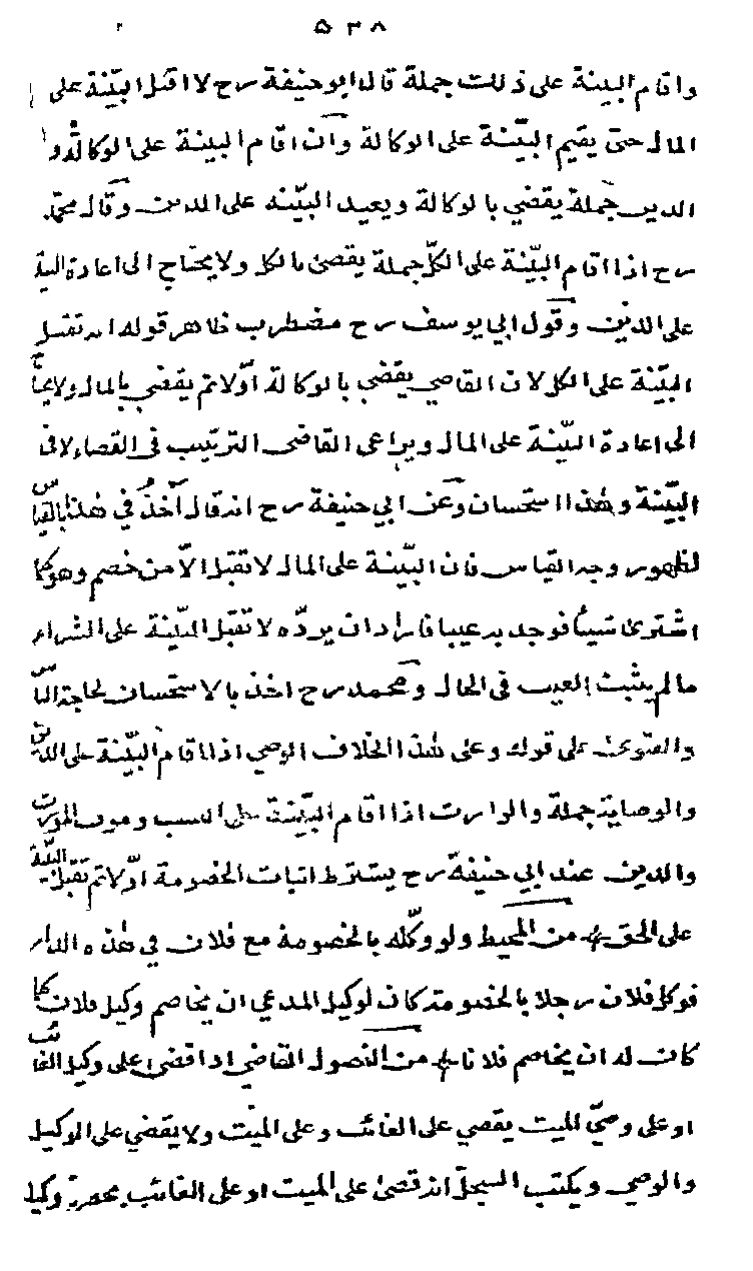 ٥٣٨
واقام البينة على ذلك جملة قال ابو حنيفة رح لا اقبل البيّنة على
المال حتى يقيم البيّنة على الوكالة وان اقام البينة على الوكالة و
الدين جملة يقضي بالوكالة ويعيد البيّنه على الدين وقال محمّد
رح اذا اقام البيّنة على الكلّ جملة يقضى بالكل ولا يحتاج الى اعادة البينة
على الدين وقول ابي يوسف رح مضطرب ظاهر قوله انه تقبل
البيّنة على الكل لان القاضي يقضي بالوكالة اوّلا ثم يقضي بالمال ولا يحتاج
الى اعادة البيّنة على المال ويراعى القاضى الترتيب فى القضاء لا فى
البيّنة وهذا استحسان وعن ابي حنيفة رح انه قال آخذ في هذا بالقياس
لظهور وجه القياس فان البيّنة على المال لا تقبل الاّ من خصم وهو كما
اشترى شيئا فوجد به عيبا فاراد ان يردّه لا تقبل البيّنة على الشراء
ما لم يثبت العيب فى الحال ومحمد رح اخذ بالاستحسان لحاجة الناس
والفتوى على قوله وعلى هذا الخلاف الوصي اذا اقام البيّنة على الدين
والوصاية جملة والوارث اذا اقام البيّنة على النسب وموت المورث
والدين عند ابي حنيفة رح يشترط اثبات الخصومة اوّلا ثم تقبل البيّنة
على الحق من المحيط ولو وكّله بالخصومة مع فلان في هذه الدار
فوكل فلان رجلا بالخصومة كان لوكيل المدعي ان يخاصم وكيل فلان كما
كان له ان يخاصم فلانا من الفصول القاضي اذا قضى على وكيل الغائب
او على وصيّ الميت يقضي على الغائب وعلى الميّت ولا يقضي على الوكيل
والوصي ويكتب السجلّ انه قضى على الميت او على الغائب بحضرة وكيل